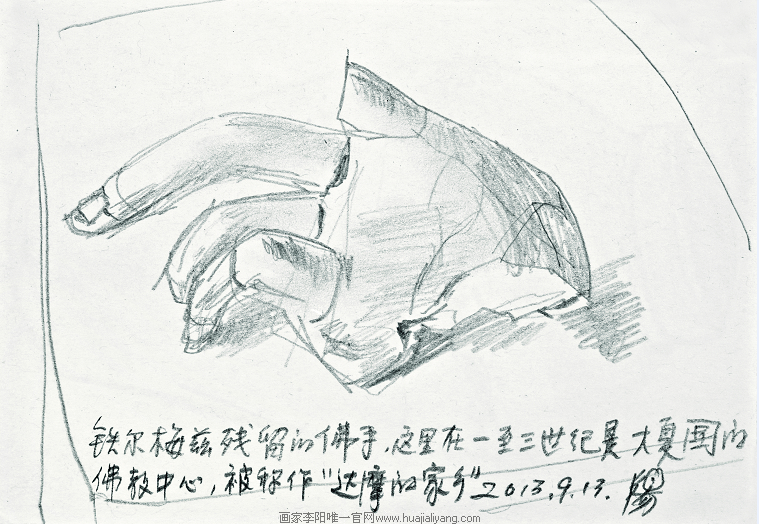 铁尔梅兹残留的佛手,这里在一至三世纪是大夏国的
佛教中心,被称作"达摩的家乡"2013.9.13. 阳
画家李阳唯一官网www.huajialiyang.com